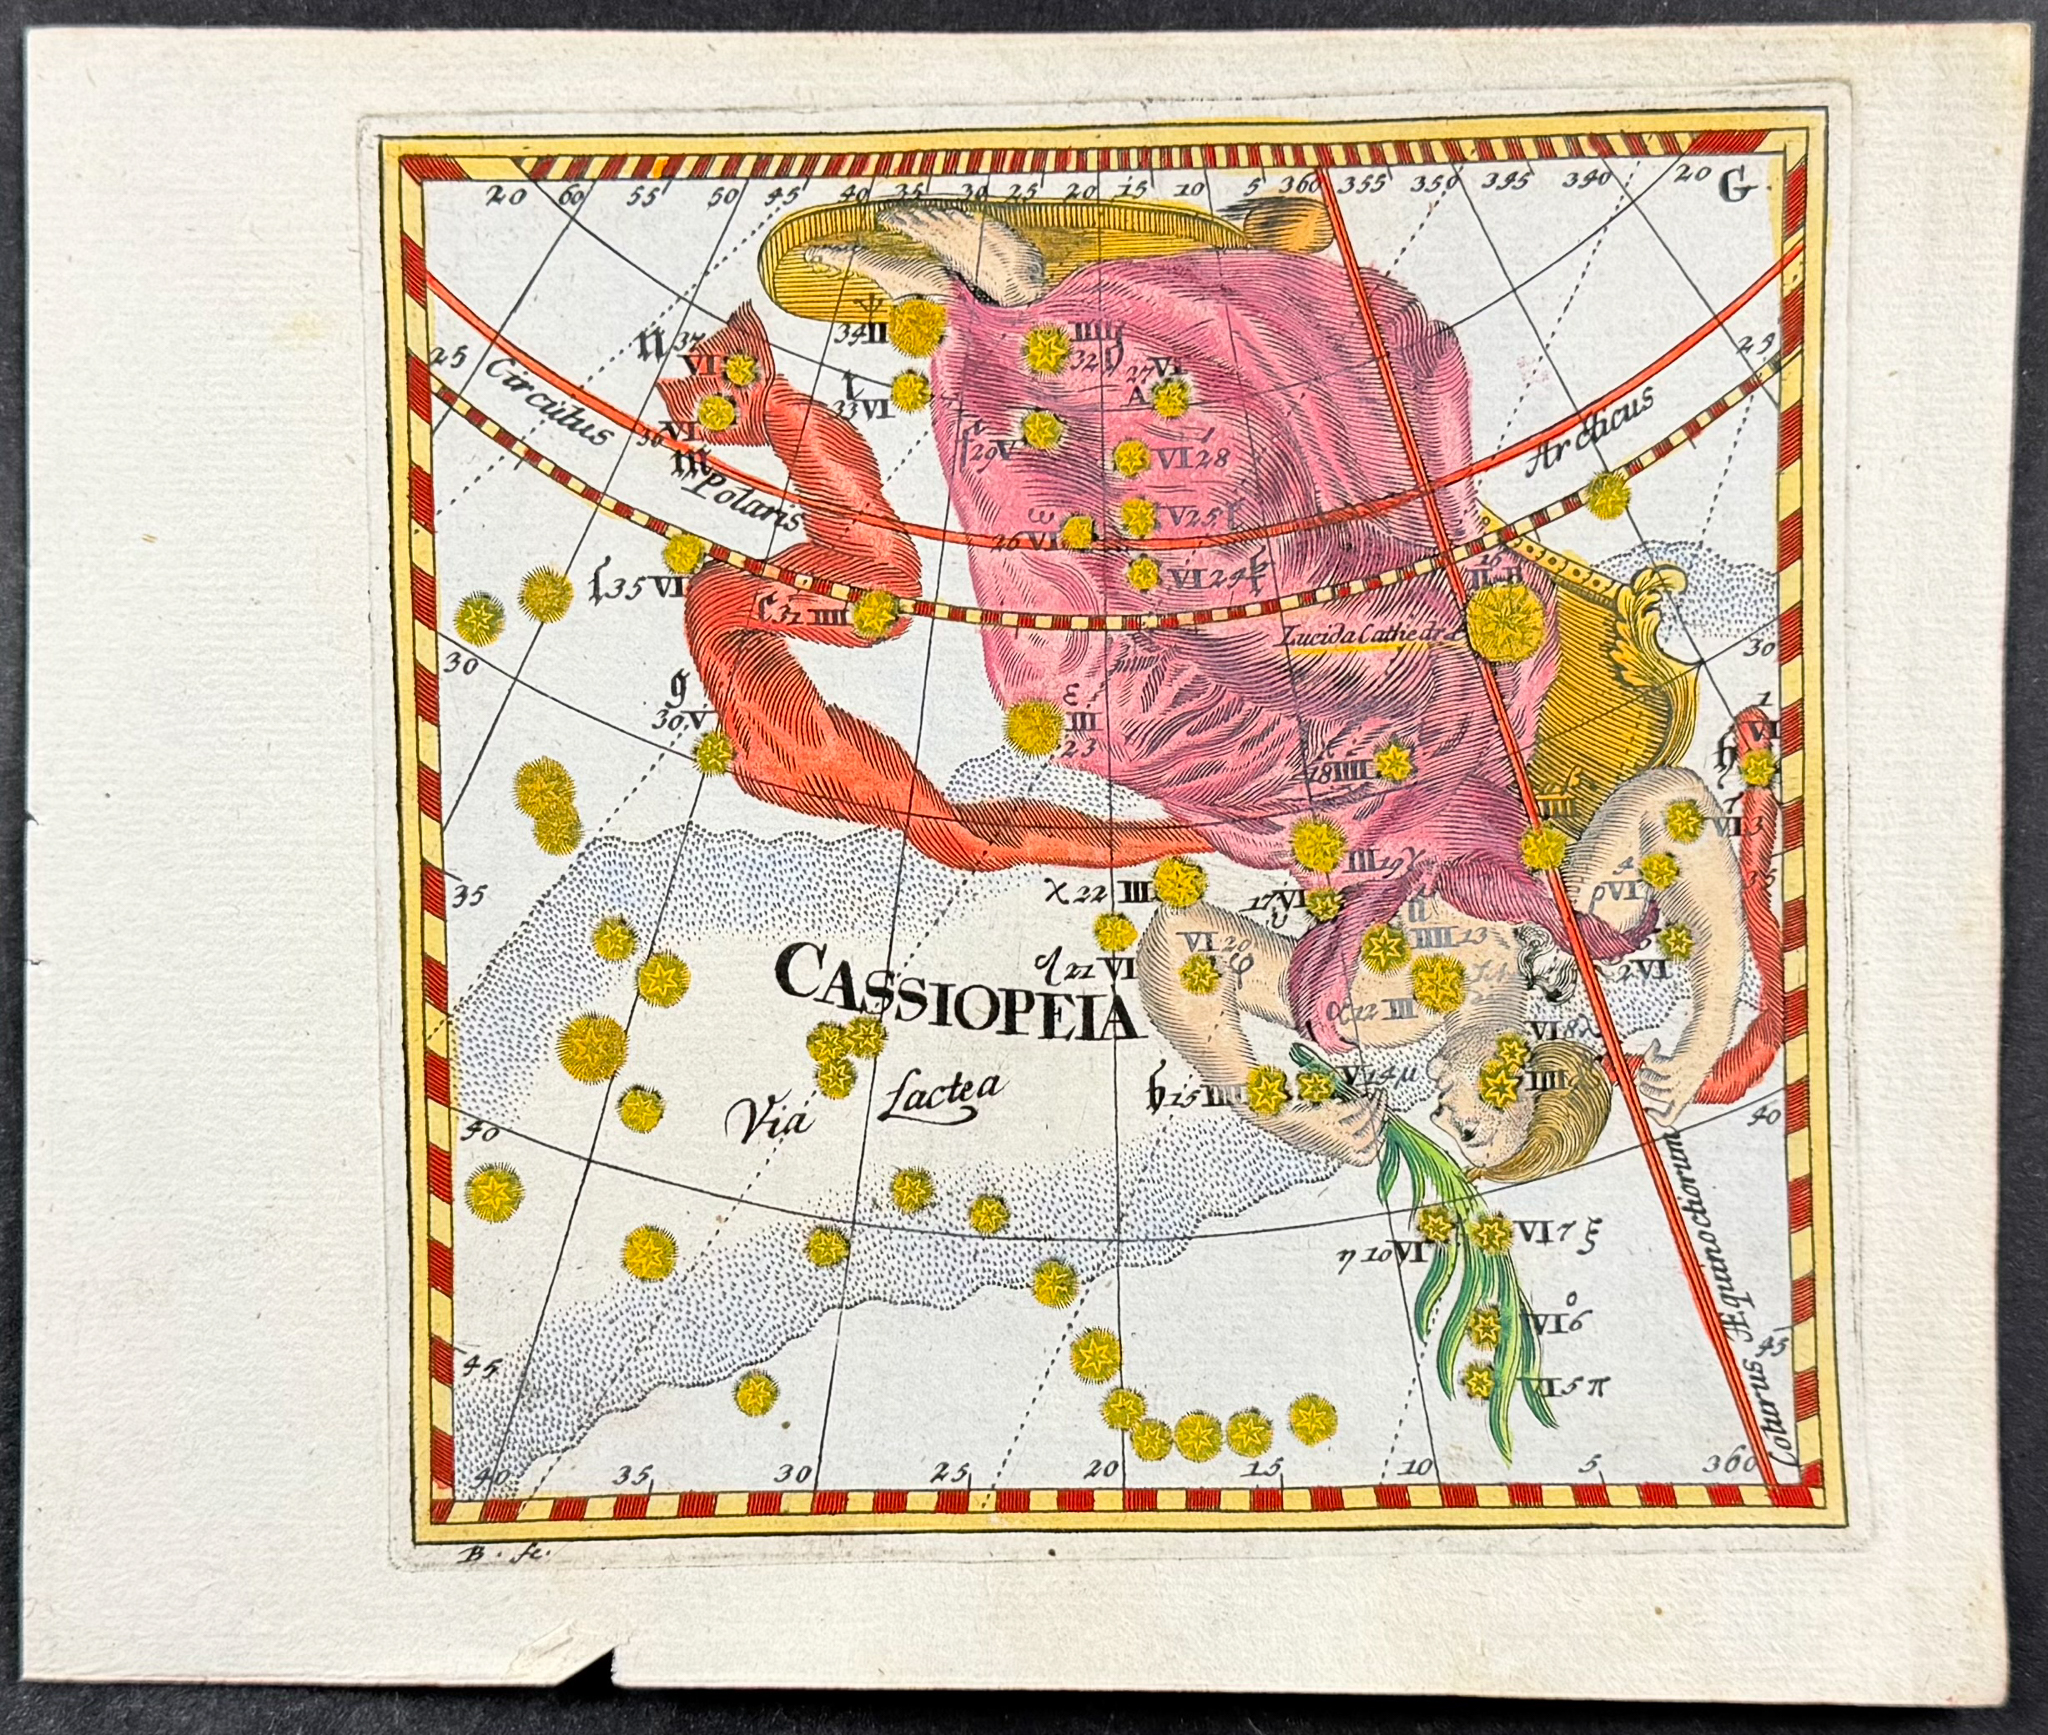 20 60 55 50 45 40 35 30 25 20 15 10 5 360 355 350 345 340 20 G.
25 25
Circulus Polaris Arcticus
ψ
34 II
IIII
32
37
VI
t
33 VI
27 VI
A
36 VI
m
29 V
VI 28
ω
26 VI
V 25
VI 24
f 35 VI
31 IIII
II
Lucida Cathedræ
30 30
g
30. V
ε
III
23
18 IIII
IIII
1
VI
h
VI 3
35 35
III 19 γ
4
ρ VI
χ 22 III
17 VI
υ
IIII 13
VI 20
φ
d 21 VI
2 VI
CASSIOPEIA
α 12 III
VI 8 λ
IIII
Via Lactea
b 15 IIII
V 14 μ
40 40
η 10 VI
VI 7 ξ
ο
VI 6
VI 5 π
45 45
Colurus Æquinoctiorum
40 35 30 25 20 15 10 5 360
B. fe.